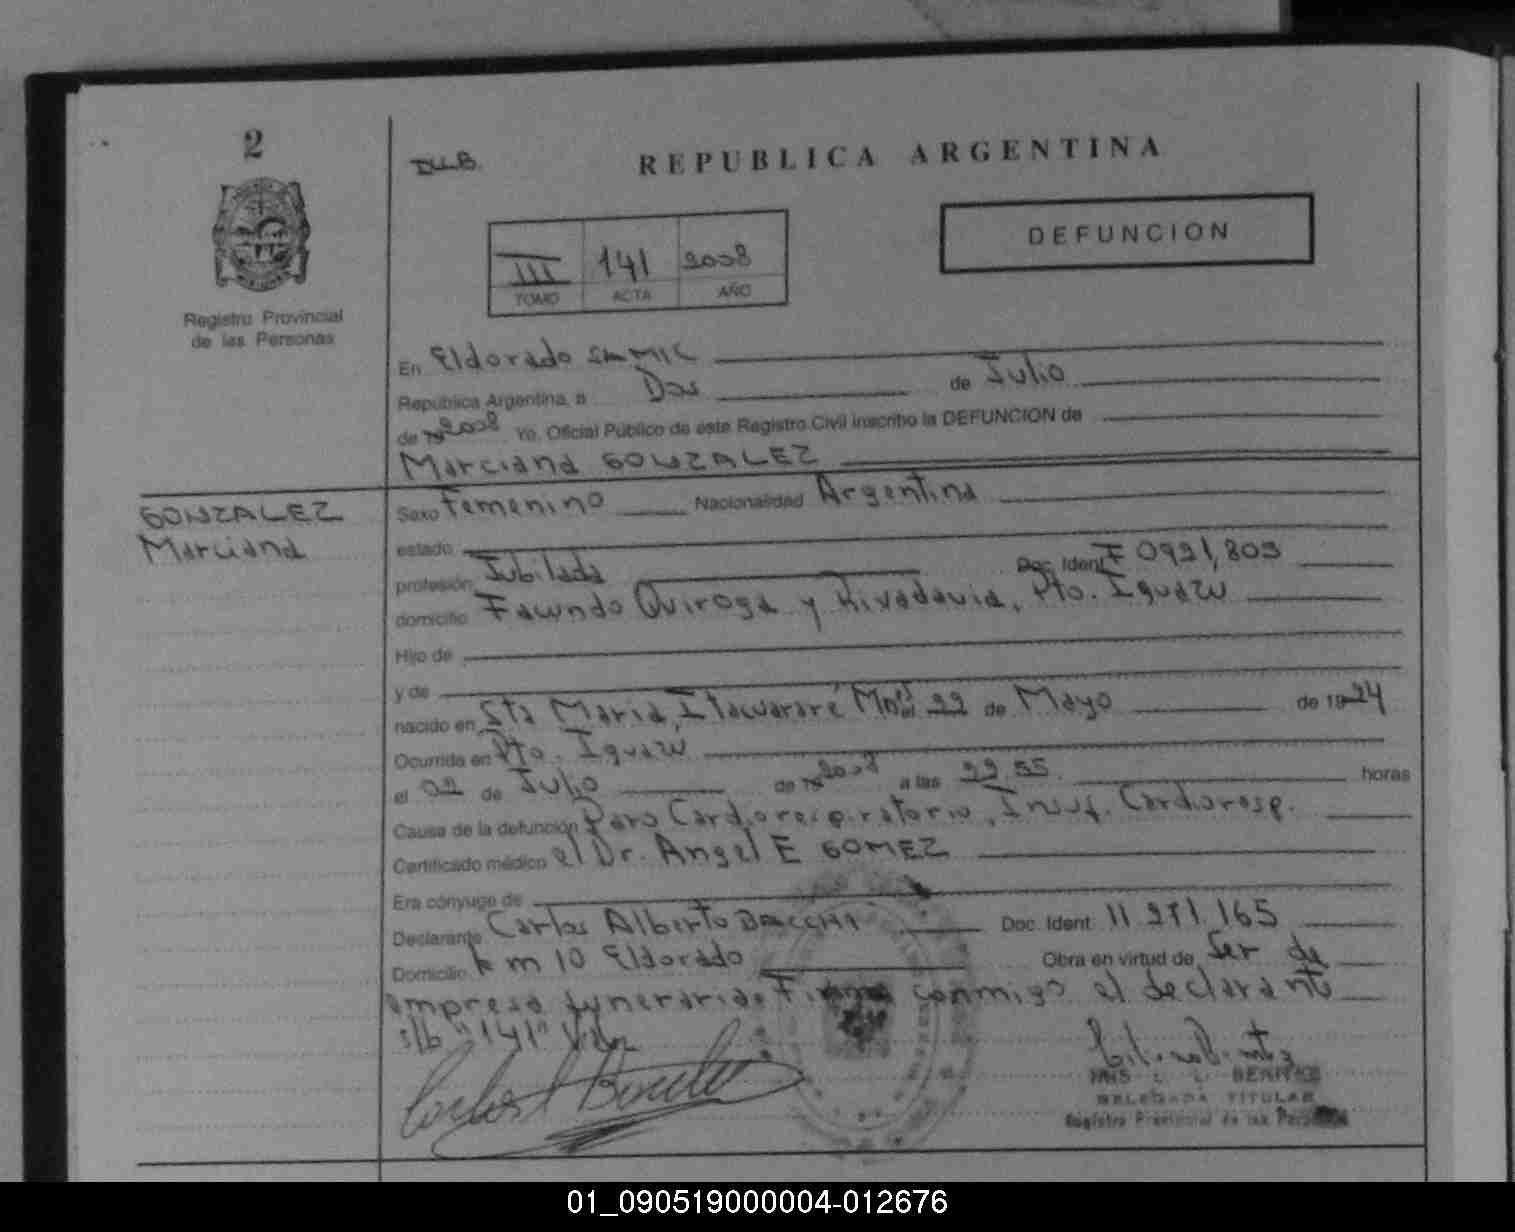 2
DUB.
REPUBLICA ARGENTINA
Registro Provincial
de las Personas
III 141 2008
TOMO ACTA AÑO
DEFUNCION
En Eldorado SAMIC
República Argentina, a Dos de Julio
de 19 2008 Yo, Oficial Público de este Registro Civil inscribo la DEFUNCION de
Marciana GONZALEZ
GONZALEZ
Marciana
Sexo Femenino Nacionalidad Argentina
estado
profesión Jubilada Doc. Ident. F 0991,809
domicilio Facundo Quiroga y Rivadavia, Pto. Iguazú
Hijo de
y de
nacido en Sta María, Itacuararé Mnes el 22 de Mayo de 19 24
Ocurrida en Pto. Iguazú
el 02 de Julio de 19 2008 a las 22 55 horas
Causa de la defunción Paro Cardiorespiratorio, Insuf. Cardioresp.
Certificado médico el Dr. Angel E GOMEZ
Era cónyuge de
Declarante Carlos Alberto Doc. Ident. 11 271 165
Domicilio km 10 Eldorado Obra en virtud de Ser de
empresa funeraria. Firma conmigo el declarante
s/b "141" Vale
DELEGADA TITULAR
Registro Provincial de las Personas
01_090519000004-012676